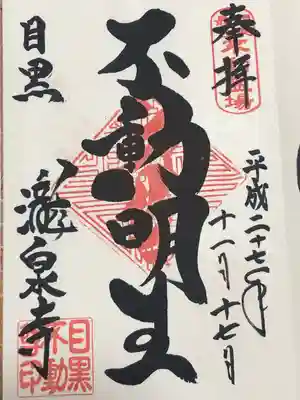 奉拝
平成二十七年
十一月十七日
不動明王
目黒
瀧泉寺
目黒
不動
寺印